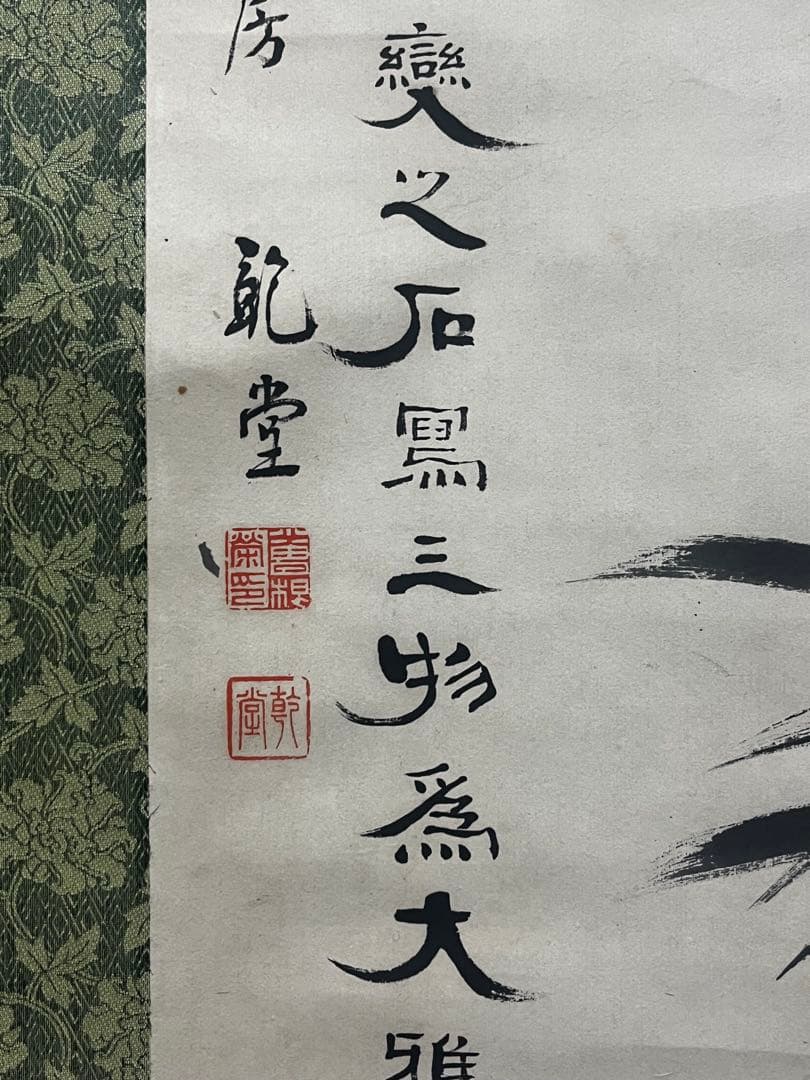 變之石寫三物爲大雅
房
乾堂
乾堂